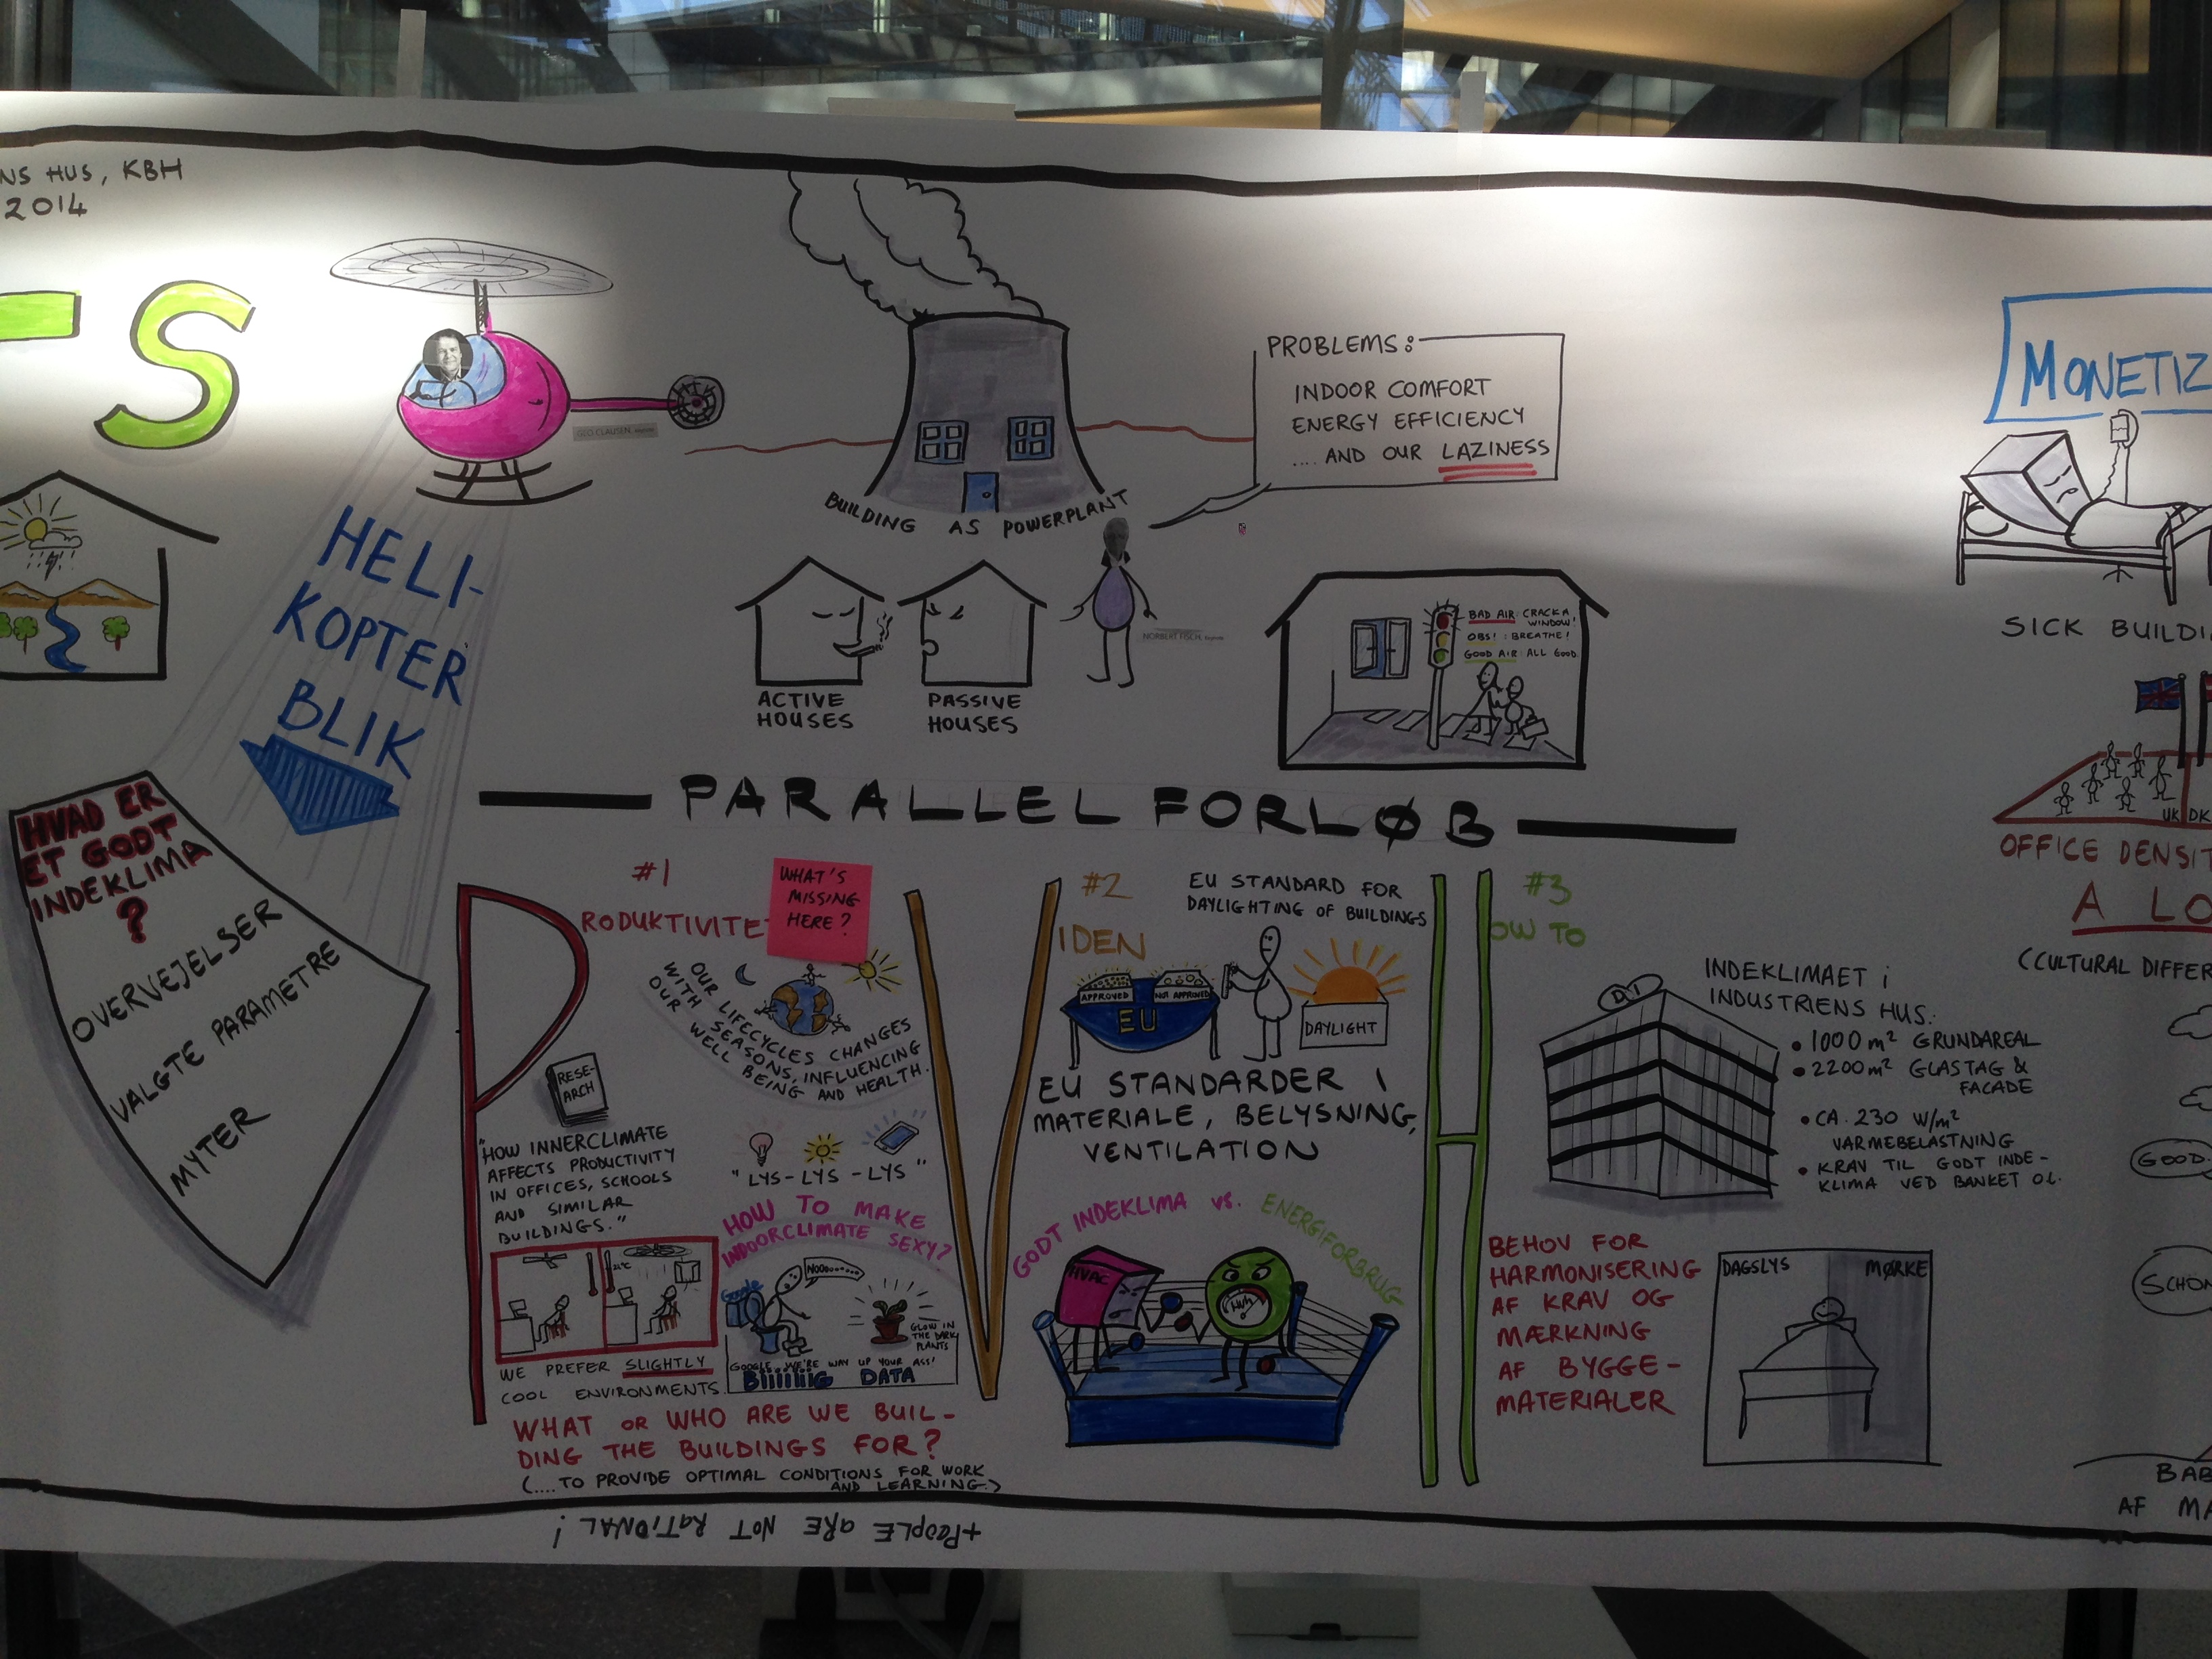 NS HUS, KBH
2014
S
HELI-
KOPTER
BLIK
HVAD ER
ET GODT
INDEKLIMA
?
OVERVEJELSER
VALGTE PARAMETRE
MYTER
GEO CLAUSEN, keynote
BUILDING AS POWERPLANT
PROBLEMS:
INDOOR COMFORT
ENERGY EFFICIENCY
.... AND OUR LAZINESS
ACTIVE
HOUSES
PASSIVE
HOUSES
NORBERT FISCH, keynote
BAD AIR: CRACK A
WINDOW!
OBS! : BREATHE!
GOOD AIR: ALL GOOD.
PARALLEL FORLØB
#1
PRODUKTIVITET
WHAT'S
MISSING
HERE?
OUR LIFECYCLES CHANGES
WITH SEASONS, INFLUENCING
OUR WELL BEING AND HEALTH.
RESE-
ARCH
"HOW INNERCLIMATE
AFFECTS PRODUCTIVITY
IN OFFICES, SCHOOLS
AND SIMILAR
BUILDINGS."
"LYS-LYS-LYS"
21°C
WE PREFER SLIGHTLY
COOL ENVIRONMENTS.
HOW TO MAKE
INDOORCLIMATE SEXY?
NOOO.......
Google
GLOW IN
THE DARK
PLANTS
GOOGLE: WE'RE WAY UP YOUR ASS!
BIIIIIIG DATA
WHAT OR WHO ARE WE BUIL-
DING THE BUILDINGS FOR?
(....TO PROVIDE OPTIMAL CONDITIONS FOR WORK
AND LEARNING.)
+PEOPLE ARE NOT RATIONAL!
#2
VIDEN
EU STANDARD FOR
DAYLIGHTING OF BUILDINGS
APPROVED
NOT APPROVED
EU
DAYLIGHT
EU STANDARDER I
MATERIALE, BELYSNING,
VENTILATION
GODT INDEKLIMA vs. ENERGIFORBRUG
HVAC
#3
HOW TO
DI
INDEKLIMAET i
INDUSTRIENS HUS:
• 1000 m² GRUNDAREAL
• 2200 m² GLASTAG &
FACADE
• CA. 230 W/m²
VARMEBELASTNING
• KRAV TIL GODT INDE-
KLIMA VED BANKET OL.
BEHOV FOR
HARMONISERING
AF KRAV OG
MÆRKNING
AF BYGGE-
MATERIALER
DAGSLYS
MØRKE
MONETIZ
SICK BUILDI
UK DK
OFFICE DENSIT
A LO
(CULTURAL DIFFER
GOOD
SCHÖN
BAB
AF MA